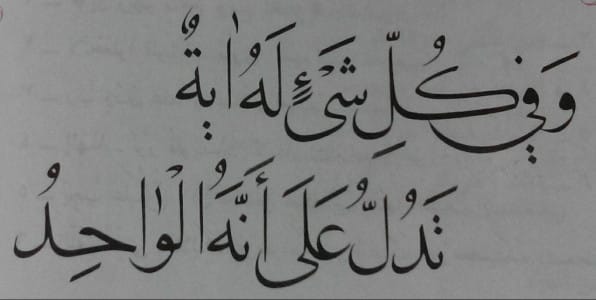 وَفِي كُلِّ شَيْءٍ لَهُ اٰيَةٌ
تَدُلُّ عَلَى أَنَّهُ الْوٰاحِدُ